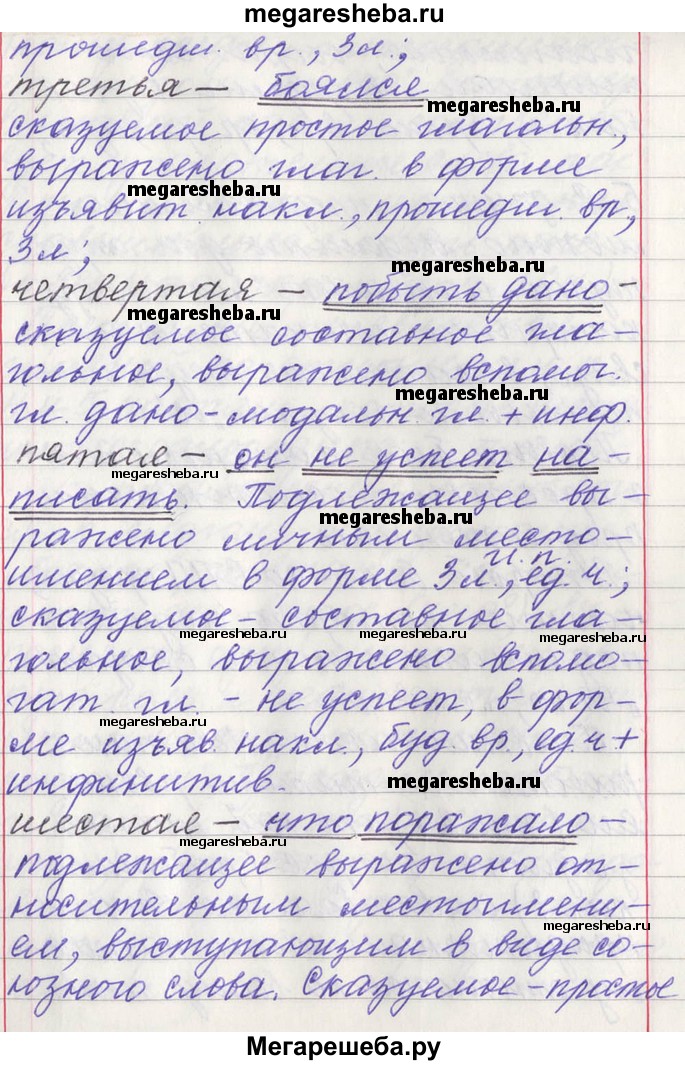 megaresheba.ru
прошедш. вр., 3л.;
третья — боялся
megaresheba.ru
сказуемое простое глагольн.,
выражено глаг. в форме
megaresheba.ru
изъявит. накл., прошедш. вр.,
3л.,
megaresheba.ru
четвертая — побыть дано-
megaresheba.ru
сказуемое составное гла-
гольное, выражено вспомог.
megaresheba.ru
гл. дано-модальн. гл. + инф.
пятая — он не успеет на-
megaresheba.ru
писать. Подлежащее вы-
megaresheba.ru
ражено личным место-
и.п.
имением в форме 3л., ед.ч.;
сказуемое - составное гла-
megaresheba.ru megaresheba.ru megaresheba.ru
гольное, выражено вспомо-
гат. гл. - не успеет, в фор-
megaresheba.ru
ме изъяв. накл., буд. вр., ед.ч +
инфинитив. megaresheba.ru
шестая — что поражало —
megaresheba.ru megaresheba.ru
подлежащее выражено от-
носительным местоимени-
ем, выступающим в виде со-
юзного слова. Сказуемое - простое
megaresheba.ru megaresheba.ru
Мегарешеба.ру